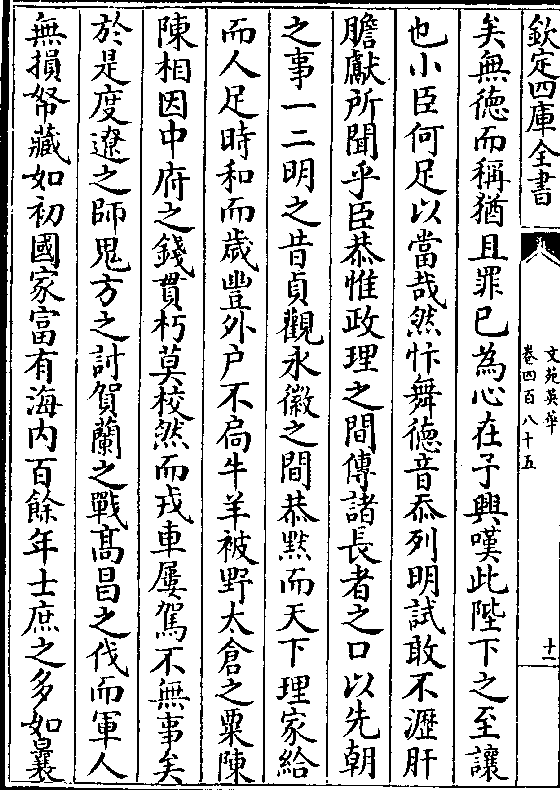 欽定四庫全書
文苑英華
卷四百八十五
十一
矣無德而稱猶且罪已為心在予興嘆此陛下之至讓
也小臣何足以當哉然忭舞德音忝列明試敢不瀝肝
膽獻所聞乎臣恭惟政理之間傳諸長者之口以先朝
之事一二明之昔貞觀永徽之間恭黙而天下理家給
而人足時和而歳豐外户不扃牛羊被野太倉之粟陳
陳相因中府之錢貫朽莫校然而戎車屢駕不無事矣
於是度遼之師鬼方之討賀蘭之戰髙昌之伐而軍人
無損帑藏如初國家富有海内百餘年士庶之多如曩